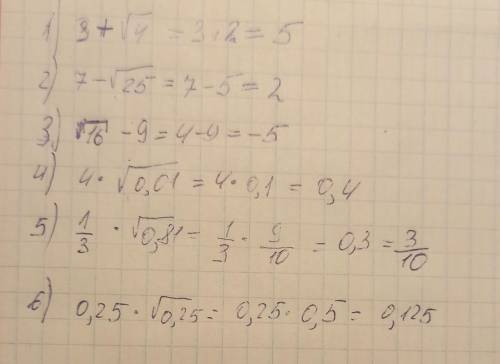 1) 3 + √4 = 3+2 = 5
2) 7 - √25 = 7 - 5 = 2
3) √16 - 9 = 4 - 9 = -5
4) 4 · √0,01 = 4 · 0,1 = 0,4
5) 1/3 · √0,81 = 1/3 · 9/10 = 0,3 = 3/10
6) 0,25 · √0,25 = 0,25 · 0,5 = 0,125